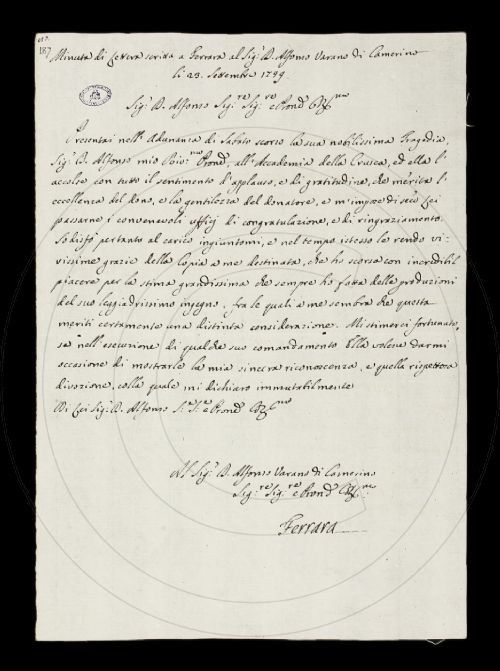 187
Minuta di Lettera scritta a Ferrara al Sig.r D. Alfonso Varano di Camerino
li 23. Settembre 1749.
Sig.r D. Alfonso Sig.re Sig.re e Prōne
Presentai nell'Adunanza di Sabato scorso la sua nobilissima Tragedia,
Sig.r D. Alfonso mio Prōne, all'Accademia della Crusca, ed ella l'
accolse con tutto il sentimento d'applauso, e di gratitudine, che merita l'
eccellenza del dono, e la gentilezza del donatore, e m'impose di seco Lei
passarne i convenevoli uffizj di congratulazione, e di ringraziamento.
Sodisfo pertanto al carico ingiuntomi, e nel tempo istesso le rendo vi-
vissime grazie della Copia a me destinata, che ho scorsa con incredibil
piacere per la stima grandissima che sempre ho fatta delle produzioni
del suo leggiadrissimo ingegno, fra le quali a me sembra che questa
meriti certamente una distinta considerazione. Mi stimerei fortunato,
se nell'esecuzione di qualche suo comandamento Ella volesse darmi
occasione di mostrarle la mia sincera riconoscenza, e quella rispettosa
divozione, colla quale mi dichiaro immutabilmente
Di Lei Sig.r D. Alfonso S.re S.re e Prōne
Al Sig.r D. Alfonso Varano di Camerino
Sig.re Sig.re e Prōne
Ferrara